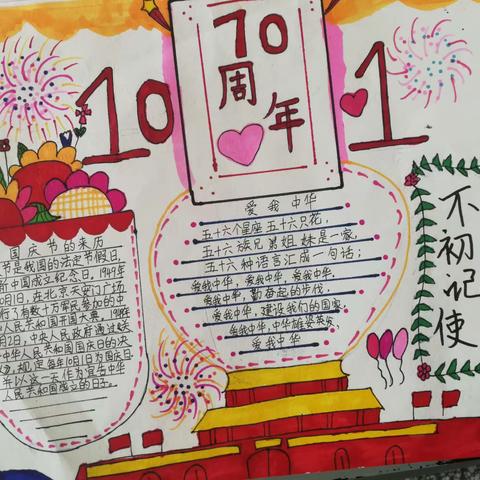 70
周
年
10
1
爱我中华
五十六个星座五十六只花,
五十六族兄弟姐妹是一家,
五十六种语言汇成一句话;
爱我中华,爱我中华,爱我中华,
爱我中华,勤奋起的步伐,
爱我中华,建设我们的国家,
爱我中华,中华雄姿英发,
爱我中华
国庆节的来历
节是我国的法定节假日,
新中国成立纪念日,1949年
10月1日,在北京天安门广场
行了有数十万军民参加的中
人民共和国开国大典。1949年
月2日,中央人民政府通过关
中华人民共和国国庆日的决
规定每年10月1日为国庆日
年以这一天作为宣告中华
人民共和国成立的日子。
不
初
记
使